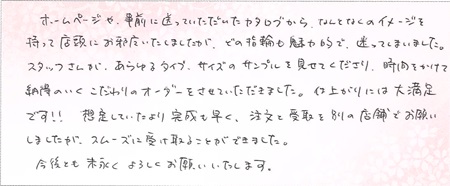 ホームページや、事前に送っていただいたカタログから、なんとなくのイメージを
持って店頭にお邪魔いたしましたが、どの指輪も魅力的で、迷ってしまいました。
スタッフさんが、あらゆるタイプ、サイズのサンプルを見せてくださり、時間をかけて
納得のいくこだわりのオーダーをさせていただきました。仕上がりには大満足
です!! 想定していたより完成も早く、注文と受取を別の店舗でお願い
しましたが、スムーズに受け取ることができました。
今後とも末永くよろしくお願いいたします。